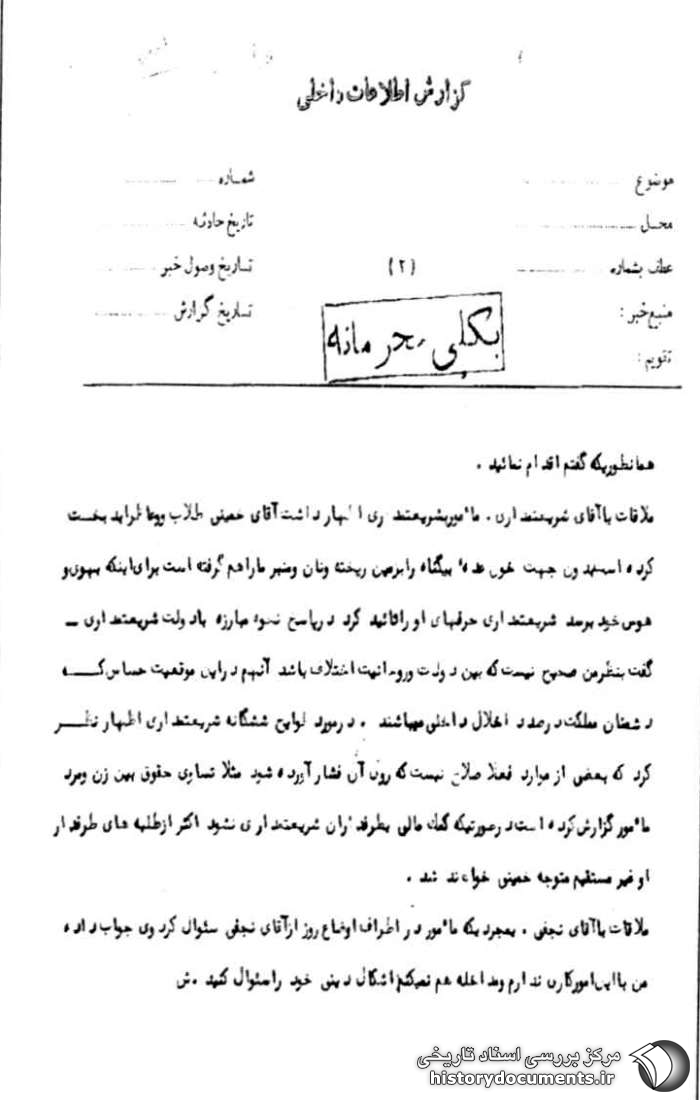 گزارش اطلاعات داخلی
موضوع
شماره
محل
تاریخ حادثه
عطف بشماره
(۲)
تاریخ وصول خبر
منبع خبر :
تاریخ گزارش
تقویم :
بکلی محرمانه
همانطوریکه گفتم اقدام نمائید .
ملاقات با آقای شریعتمداری . مأمور بشریعتمداری اظهار داشت آقای خمینی طلاب و وعاظ را بد بخت
کرده است بدون جهت خون عده بیگناه را بزمین ریخته ونان ومنبر ما را هم گرفته است برای اینکه بهوی و
هوس خود برسد شریعتمداری حرفهای او را تائید کرد در پاسخ نحوه مبارزه با دولت شریعتمداری ــ
گفت بنظر من صحیح نیست که بین دولت وروحانیت اختلاف باشد آنهم در این موقعیت حساس کـــه
دشمنان مملکت در صدد اخلال داخلی میباشند . در مورد لوایح ششگانه شریعتمداری اظهار نظــر
کرد که بعضی از موارد فعلا صلاح نیست که روی آن فشار آورده شود مثلا تساوی حقوق بین زن ومرد
مأمور گزارش کرده است در صورتیکه کمک مالی بطرفداران شریعتمداری نشود اکثر از طلبه های طرفدار
او غیر مستقیم متوجه خمینی خواهند شد .
ملاقات با آقای نجفی . بمجردیکه مأمور در اطراف اوضاع روز از آقای نجفی سئوال کرد وی جواب داده
من با این امور کاری ندارم ومداخله هم نمیکنم اشکال دینی خود را سئوال کنید .ش
مرکز بررسی اسناد تاریخی
historydocuments.ir